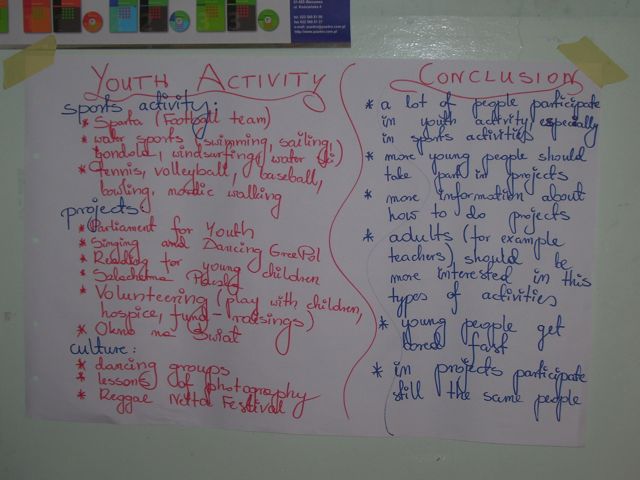 YOUTH ACTIVITY
sports activity:
* Sparta (Football team)
* water sports (swimming, sailing,
gondola, windsurfing, water ski)
* tennis, volleyball, baseball,
bowling, nordic walking
projects:
* Parliament for Youth
* Singing and Dancing GreePol
* Reading for young children
* Szlachetna
* Volunteering (play with children,
hospice, fund-raisings)
* Okno na Świat
culture:
* dancing groups
* lessons of photography
* Reggae Festival
CONCLUSION
* a lot of people participate
in youth activity especially
in sports activities
* more young people should
take part in projects
* more information about
how to do projects
* adults (for example
teachers) should be
more interested in this
types of activities
* young people get
bored fast
* in projects participate
still the same people